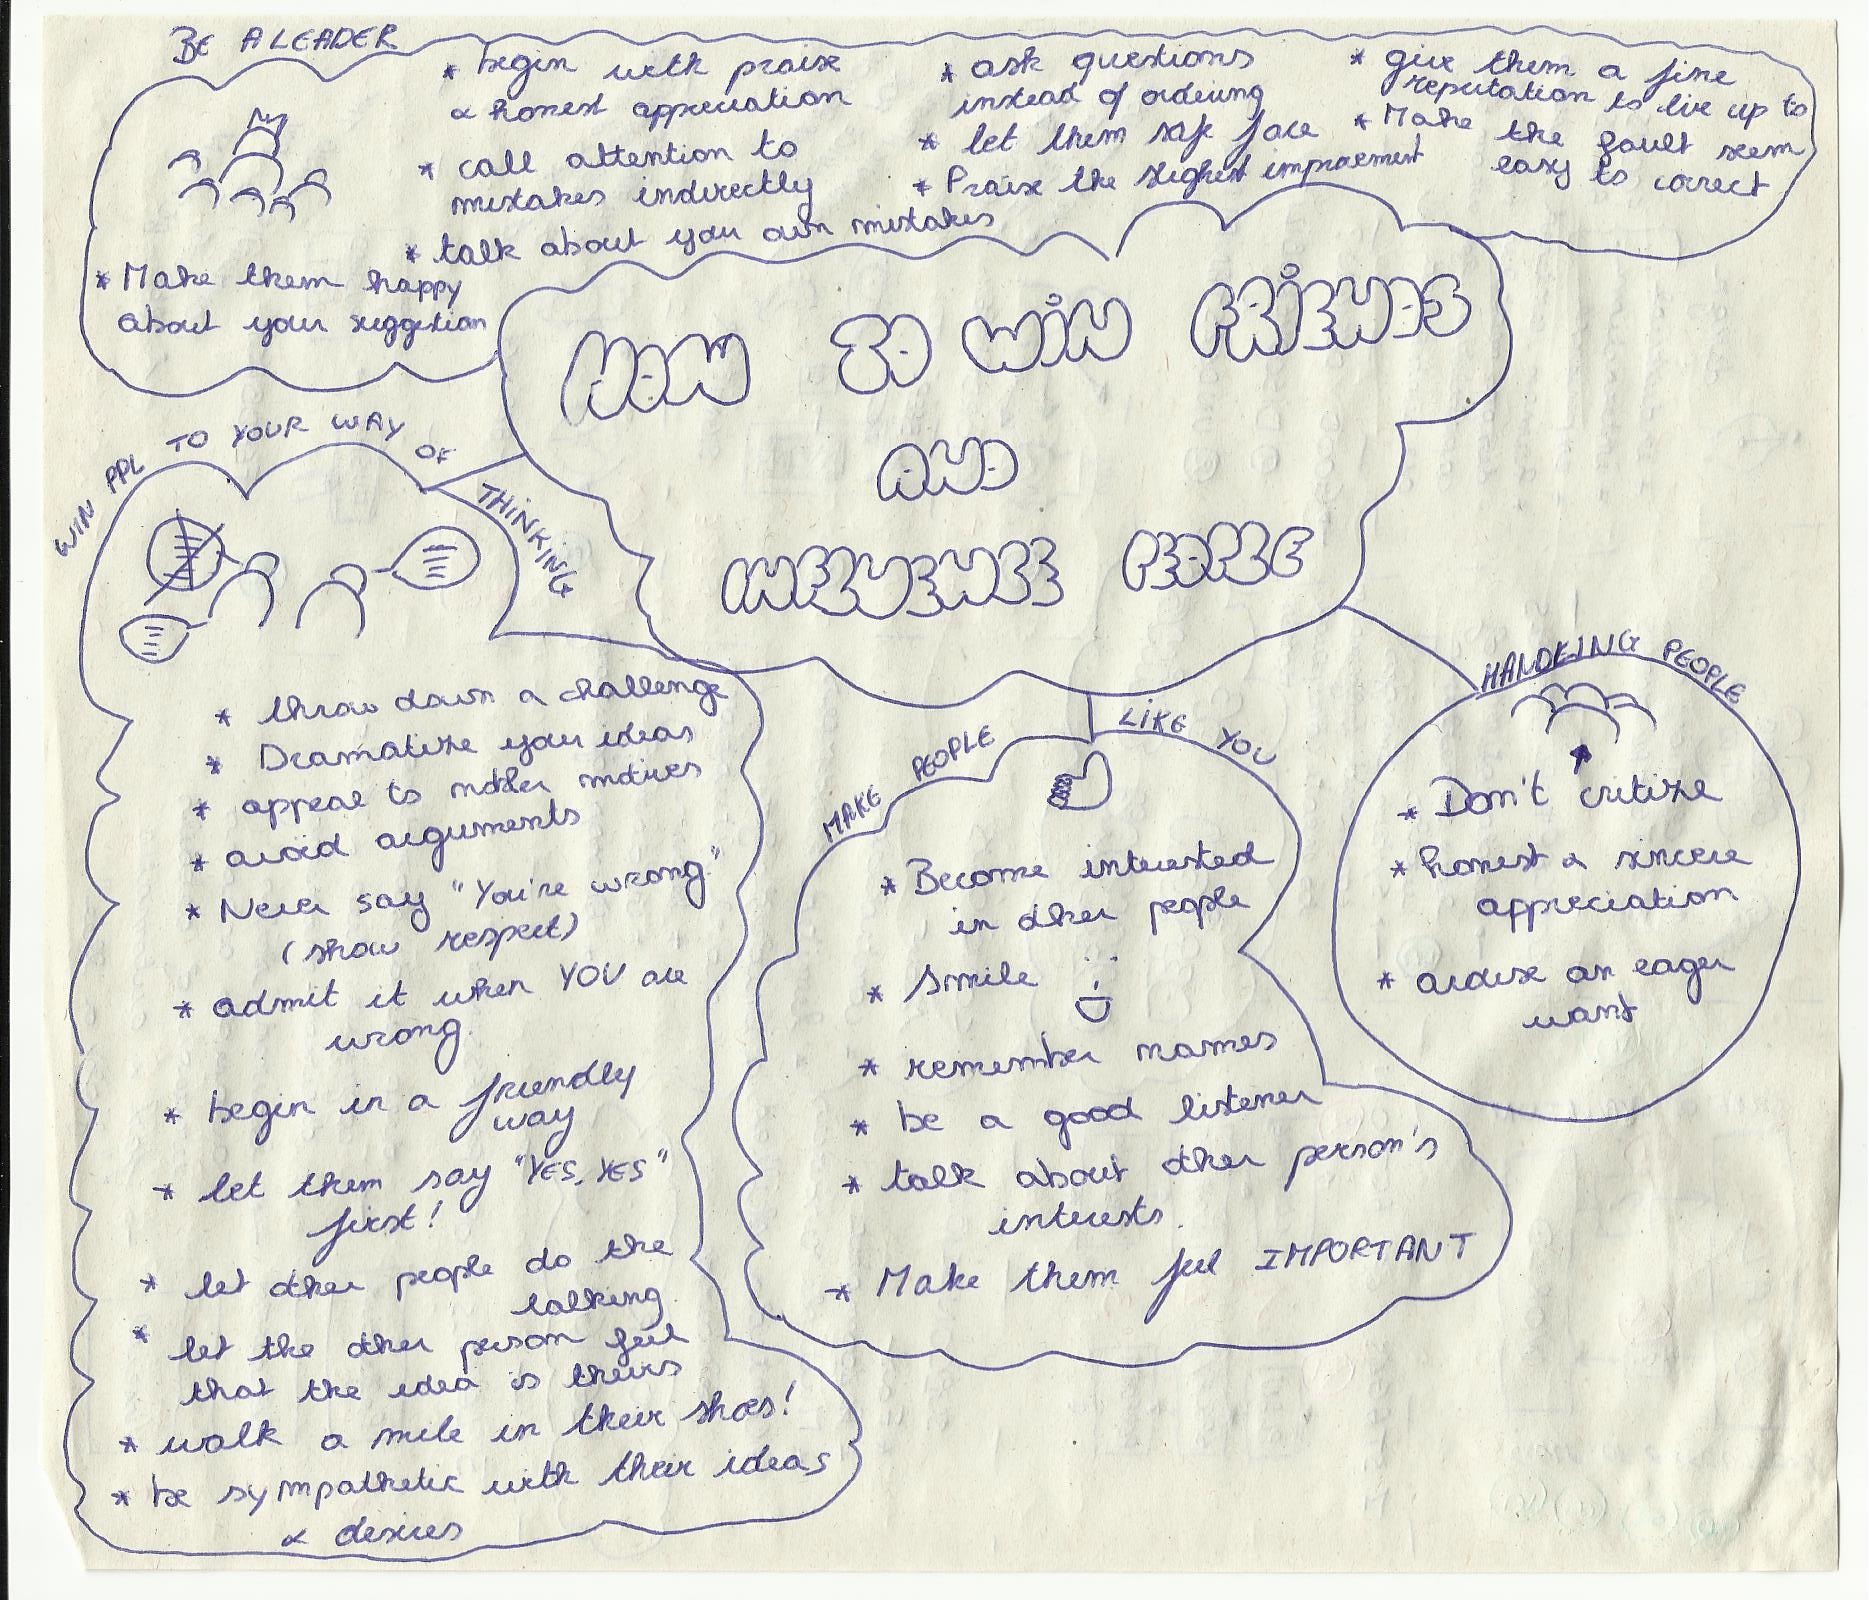 BE A LEADER
* begin with praise
& honest appreciation
* call attention to
mistakes indirectly
* talk about your own mistakes
* Make them happy
about your suggestion
* ask questions
instead of ordering
* let them safe face
* Praise the slighest improvement
* give them a fine
reputation to live up to
* Make the fault seem
easy to correct
HOW TO WIN FRIENDS
AND
INFLUENCE PEOPLE
WIN PPL TO YOUR WAY OF THINKING
* throw down a challenge
* Dramatize your ideas
* appeal to nobler motives
* avoid arguments
* Never say "You're wrong."
(show respect)
* admit it when YOU are
wrong.
* begin in a friendly
way
* let them say "YES, YES"
first!
* let other people do the
talking.
* let the other person feel
that the idea is theirs
* walk a mile in their shoes!
* be sympathetic with their ideas
& desires
MAKE PEOPLE LIKE YOU
* Become interested
in other people
* Smile
* remember names
* be a good listener
* talk about other person's
interests.
* Make them feel IMPORTANT
HANDLING PEOPLE
* Don't critize
* honest & sincere
appreciation
* arouse an eager
want